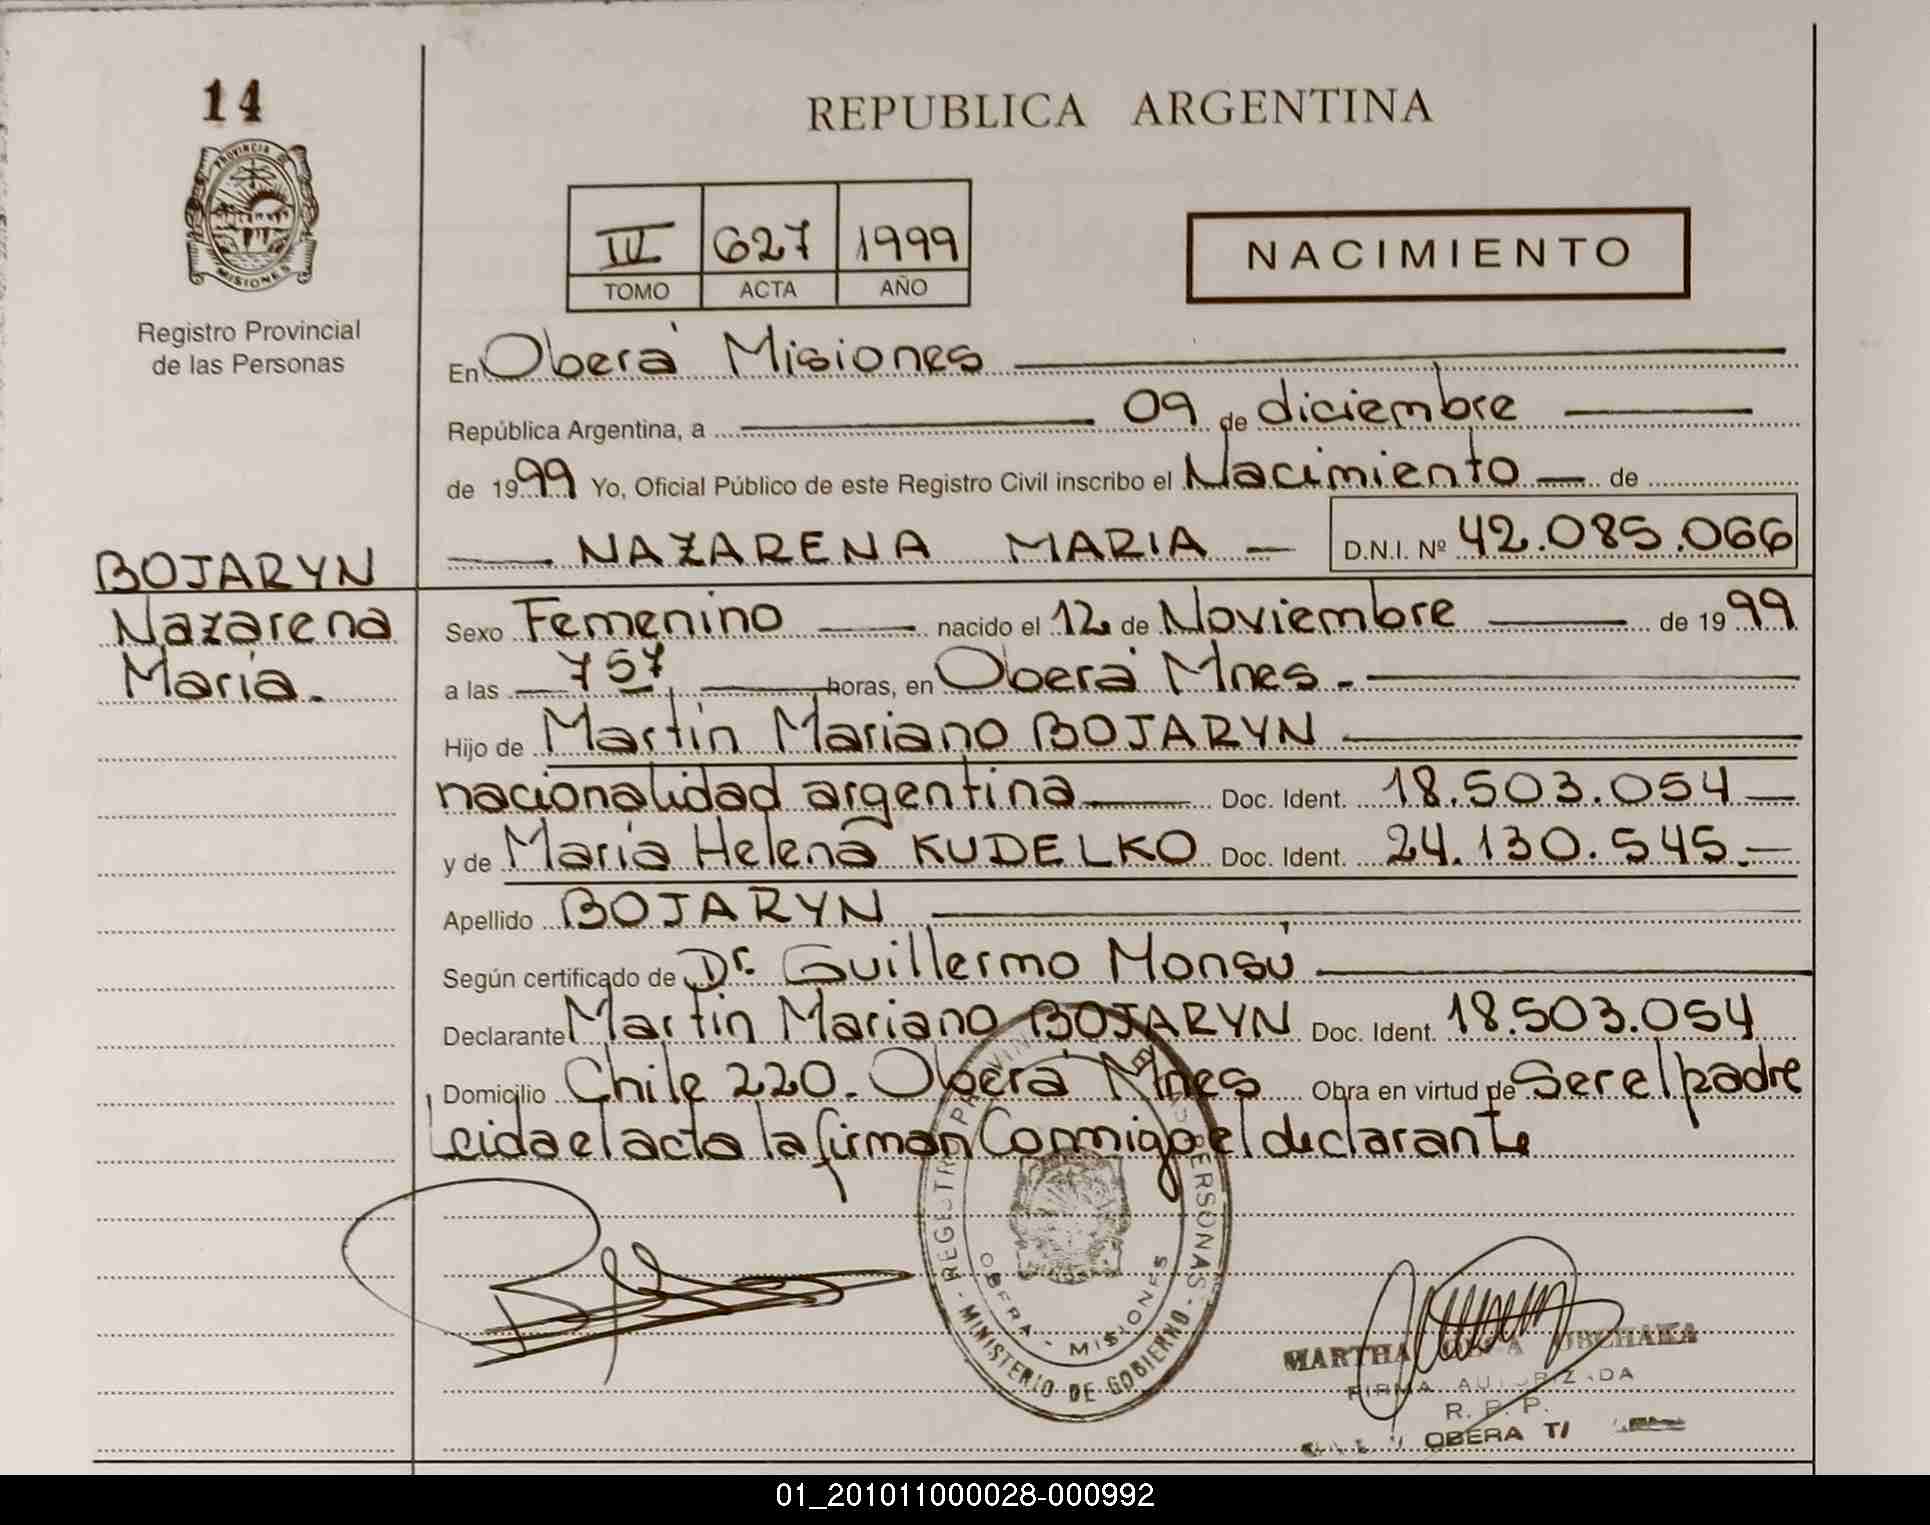 14
REPUBLICA ARGENTINA
PROVINCIA DE
MISIONES
Registro Provincial
de las Personas
III 627 1999
TOMO ACTA AÑO
NACIMIENTO
En Oberá Misiones
República Argentina, a 09 de diciembre
de 1999 Yo, Oficial Público de este Registro Civil inscribo el Nacimiento de
NAZARENA MARIA D.N.I. Nº 42.085.066
BOJARYN
Nazarena
María.
Sexo Femenino nacido el 12 de Noviembre de 1999
a las 7 57 horas, en Oberá Mnes.
Hijo de Martín Mariano BOJARYN
nacionalidad argentina Doc. Ident. 18.503.054
y de María Helena KUDELKO Doc. Ident. 24.130.545.
Apellido BOJARYN
Según certificado de Dr. Guillermo Monsú
Declarante Martín Mariano BOJARYN Doc. Ident. 18.503.054
Domicilio Chile 220. Oberá Mnes Obra en virtud de Ser el padre
Leida el acta la firman Conmigo el declarante
REGISTRO PROVINCIAL DE LAS PERSONAS
OBERA - MISIONES
- MINISTERIO DE GOBIERNO -
MARTHA
FIRMA AUTORIZADA
R. P. P.
OBERA
01_201011000028-000992